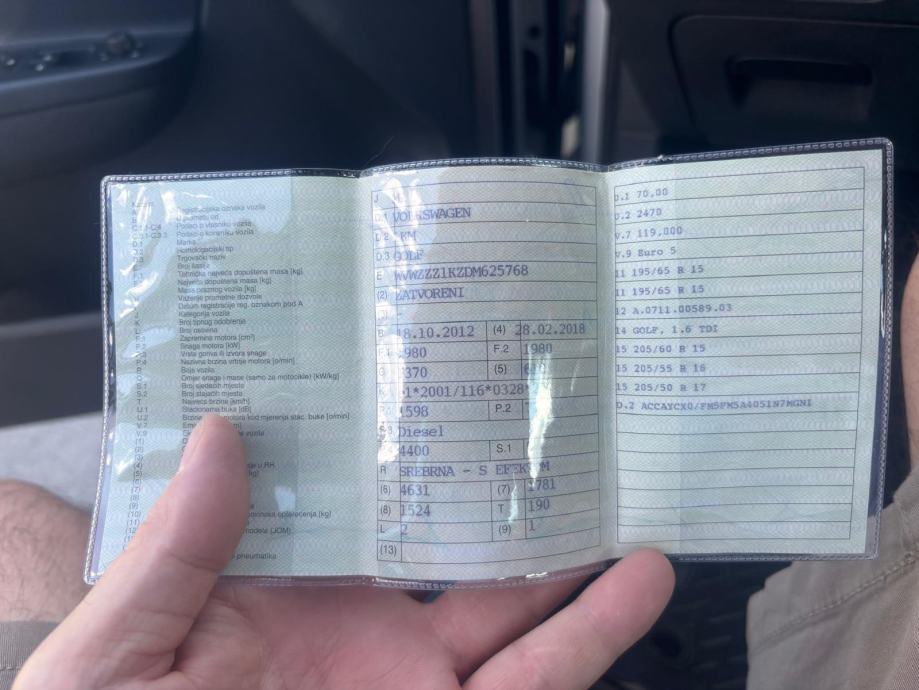 Registarska oznaka vozila
U prometu od
Podaci o vlasniku vozila
Podaci o korisniku vozila
Marka
Homologacijski tip
Trgovački naziv
Broj šasije
Tehnička najveća dopuštena masa [kg]
Najveća dopuštena masa [kg]
Masa praznog vozila [kg]
Važenje prometne dozvole
Datum registracije reg. oznakom pod A
Kategorija vozila
Broj tipnog odobrenja
Broj osovina
Zapremina motora [cm³]
Snaga motora [kW]
Vrsta goriva ili izvora snage
Nazivna brzina vrtnje motora [o/min]
Boja vozila
Omjer snage i mase (samo za motocikle) [kW/kg]
Broj sjedećih mjesta
Broj stajaćih mjesta
Najveća brzina [km/h]
U.1 Stacionarna buka [dB]
motora kod mjerenja stac. buke [o/min]
V.7
V.9 vozila
u RH
opterećenja [kg]
modela (JOM)
pneumatika
J M
D.1 VOLKSWAGEN
D.2 1KM
D.3 GOLF
E WVWZZZ1KZDM625768
(2) ZATVORENI
(3) -
B 18.10.2012 (4) 28.02.2018
F.1 1980 F.2 1980
G 1370 (5)
K *2001/116*0328
1598 P.2
Diesel
4400 S.1
R SREBRNA - S EFEKTOM
(6) 4631 (7) 1781
(8) 1524 T 190
L 2 (9) 1
(13)
U.1 70,00
U.2 2470
V.7 119,000
V.9 Euro 5
11 195/65 R 15
11 195/65 R 15
12 A.0711.00589.03
14 GOLF, 1.6 TDI
15 205/60 R 15
15 205/55 R 16
15 205/50 R 17
D.2 ACCAYCX0/FM5FM5A4051N7MGNI